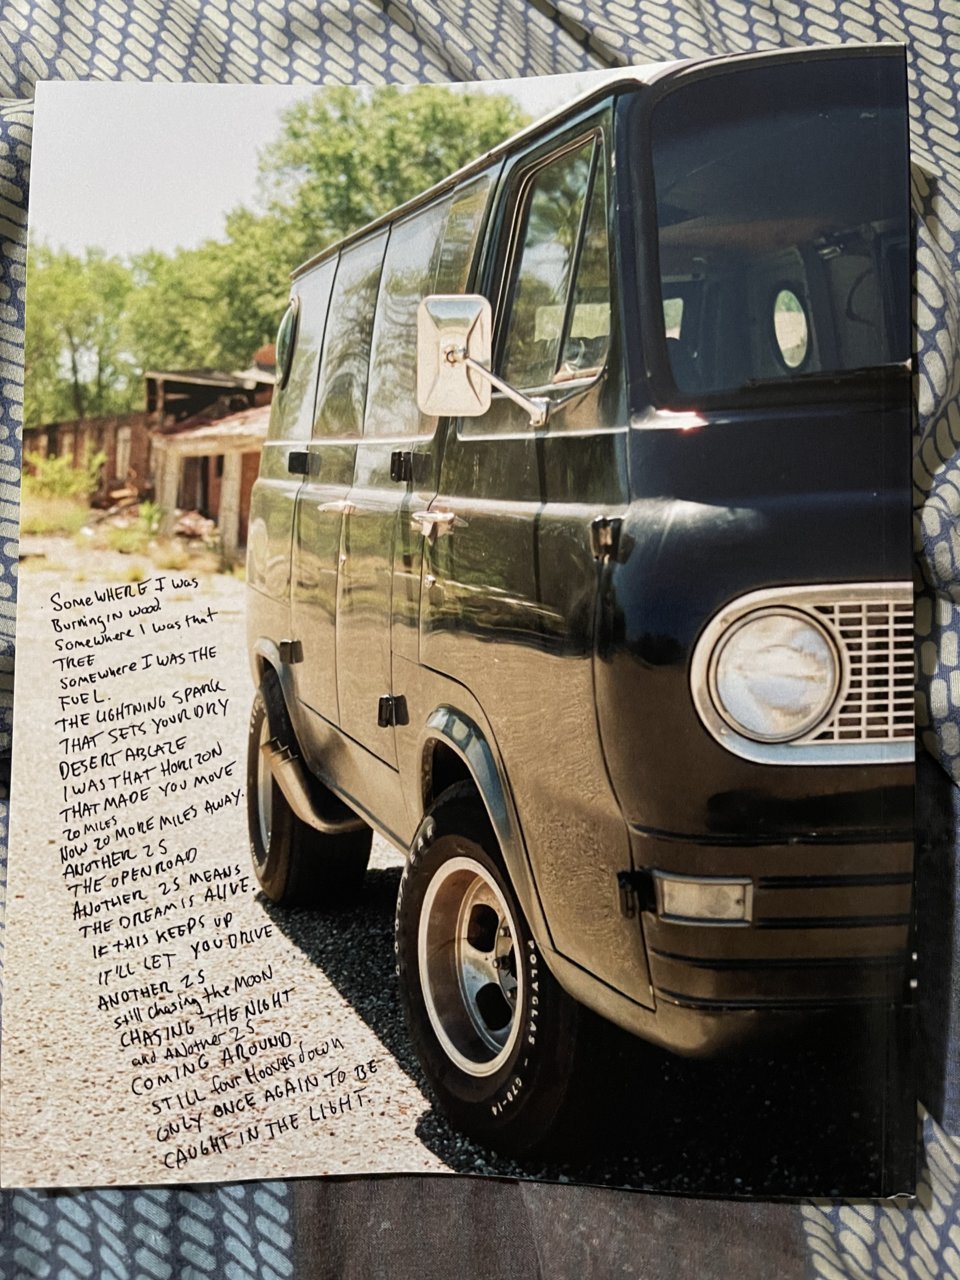 SomeWHERE I was
Burning in wood
Somewhere I was that
TREE
SOMEWHERE I WAS THE
FUEL.
THE LIGHTNING SPARK
THAT SETS YOUR DRY
DESERT ABLAZE
I WAS THAT HORIZON
THAT MADE YOU MOVE
20 MILES
NOW 20 MORE MILES AWAY.
ANOTHER 25
THE OPEN ROAD
ANOTHER 25 MEANS
THE DREAM IS ALIVE.
IF THIS KEEPS UP
IT'LL LET YOU DRIVE
ANOTHER 25
still chasing the MOON
CHASING THE NIGHT
and ANother 25
COMING AROUND
STILL four Hooves down
ONLY ONCE AGAIN TO BE
CAUGHT IN THE LIGHT.
POLYGLAS - G70-14